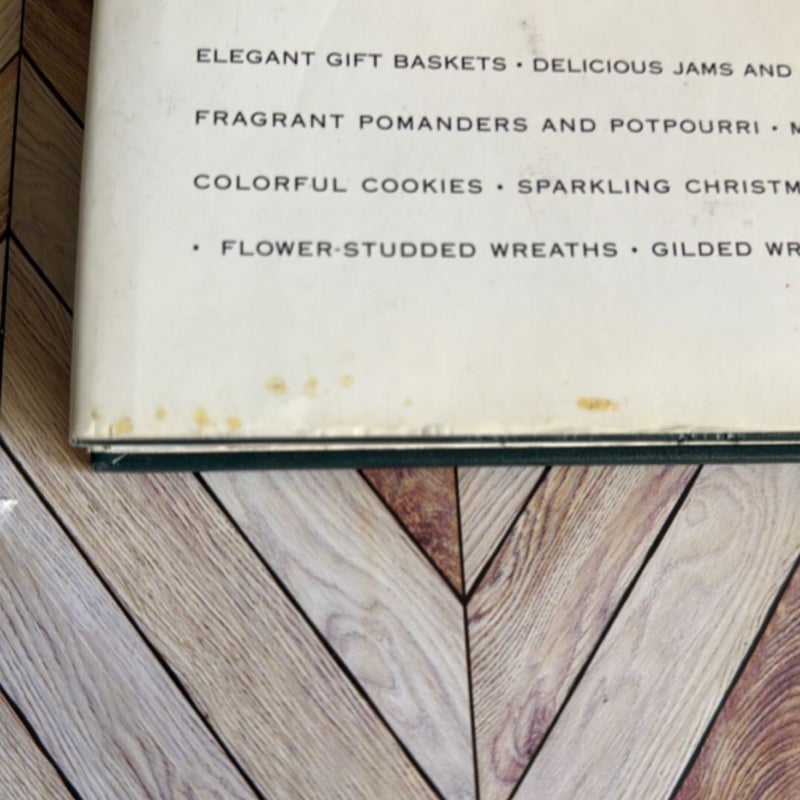 ELEGANT GIFT BASKETS • DELICIOUS JAMS AND
FRAGRANT POMANDERS AND POTPOURRI •
COLORFUL COOKIES • SPARKLING
• FLOWER-STUDDED WREATHS • GILDED